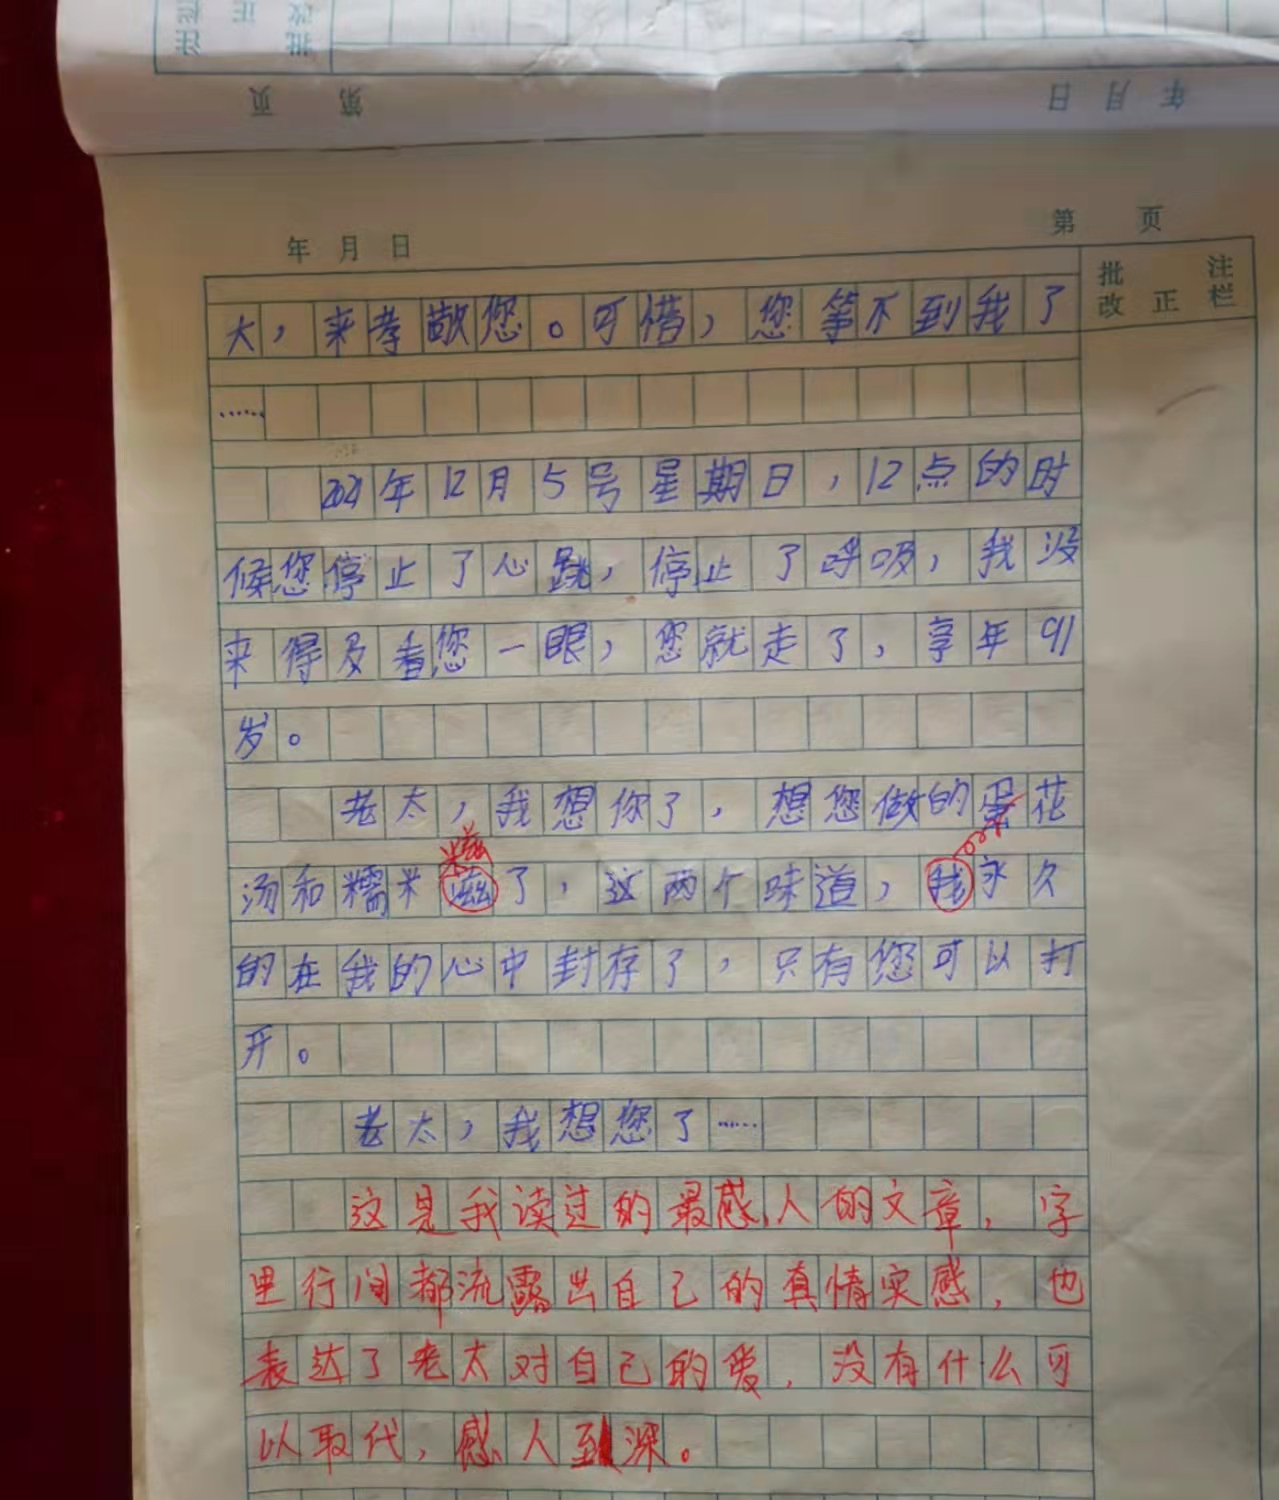 年 月 日
第 页
批 注
改 正 栏
大，来孝敬您。可惜，您等不到我了
……
2021年12月5号星期日，12点的时
候您停止了心跳，停止了呼吸，我没
来得及看您一眼，您就走了，享年91
岁。
老太，我想你了，想您做的蛋花
糍
汤和糯米滋了，这两个味道，我永久
的在我的心中封存了，只有您可以打
开。
老太，我想您了……
这是我读过的最感人的文章，字
里行间都流露出自己的真情实感，也
表达了老太对自己的爱，没有什么可
以取代，感人至深。